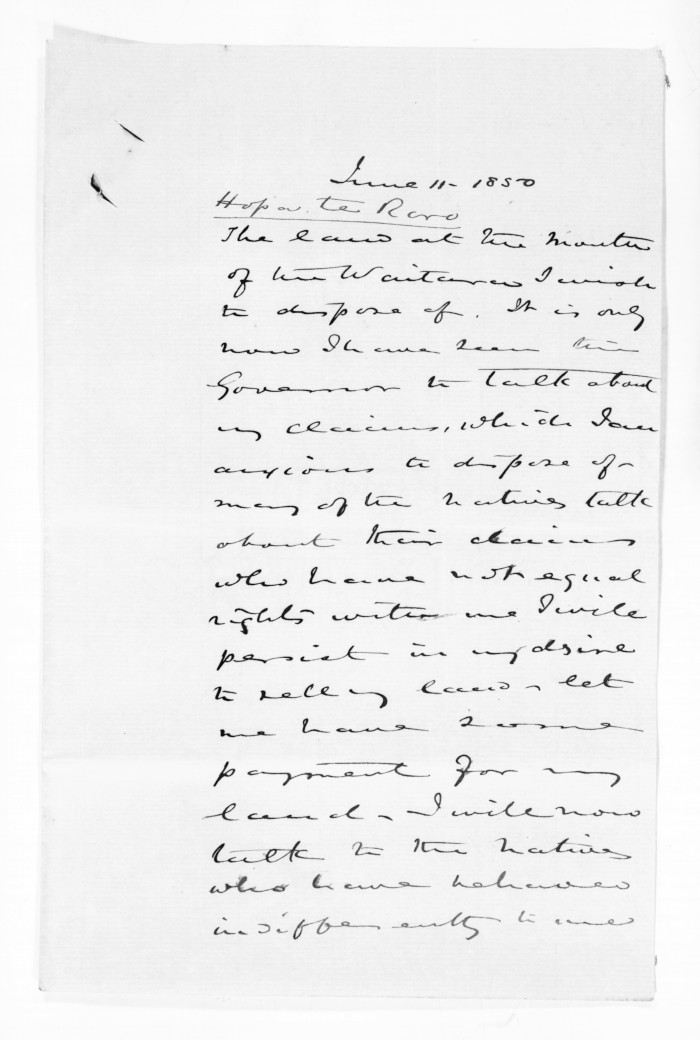 June 11- 1850
Hopa te Roro
The land at the mouth
of the Waitara I wish
to dispose of. It is only
now I have seen the
Governor to talk about
my claims, which I am
anxious to dispose of -
many of the natives talk
about their claims
who have not equal
rights with me I will
persist in my desire
to sell my land - let
me have some
payment for my
land - I will now
talk to the natives
who have behaved
indifferently to me